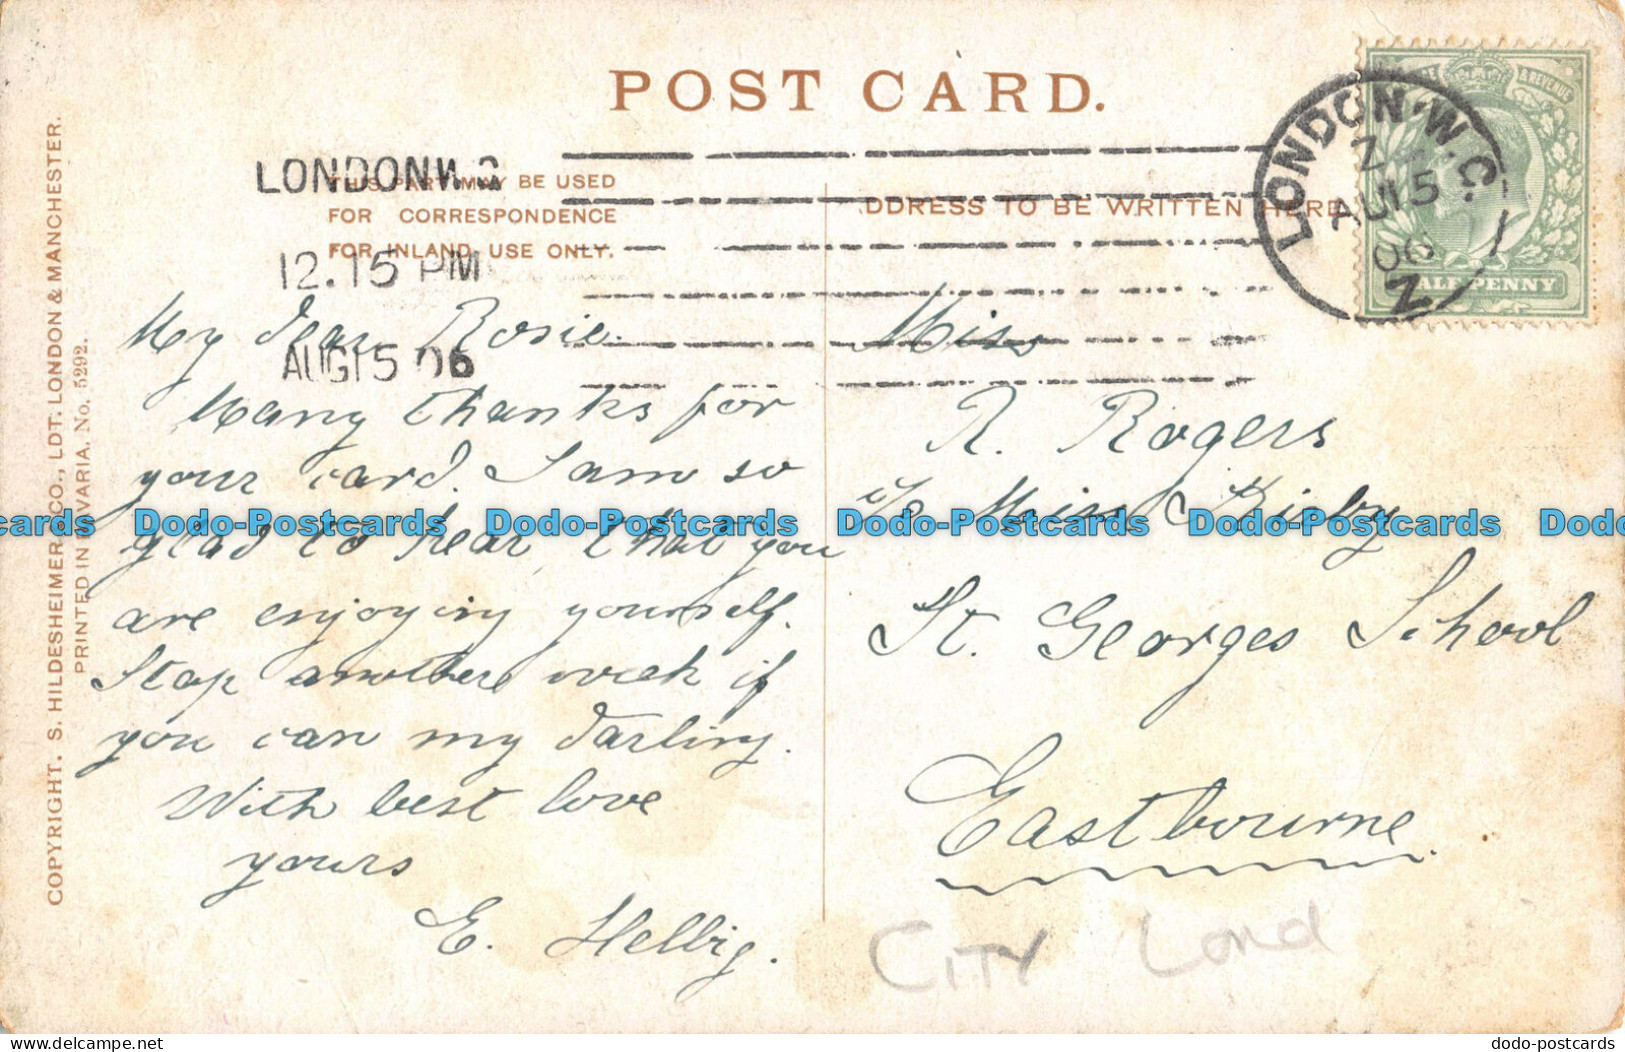 POST CARD.
LONDON W.C
THIS PART MAY BE USED
FOR CORRESPONDENCE
FOR INLAND USE ONLY.
12.15 PM
AUG 15 06
DDRESS TO BE WRITTEN HERE
LONDON.W.C.
Z
AU 15
06
Z
& REVENUE
HALFPENNY
My dear Rosie.
Many thanks for
your card. I am so
glad to hear that you
are enjoying yourself.
Stop another week if
you can my darling.
With best love
yours
E. Hellbig.
Miss
R. Rogers
c/o Miss Kirby
St. Georges School
Eastbourne.
CITY Lond
COPYRIGHT. S. HILDESHEIMER & CO., LDT. LONDON & MANCHESTER.
PRINTED IN BAVARIA. No. 5292.
cards Dodo-Postcards Dodo-Postcards Dodo-Postcards Dodo-Postcards Dodo
www.delcampe.net
dodo-postcards